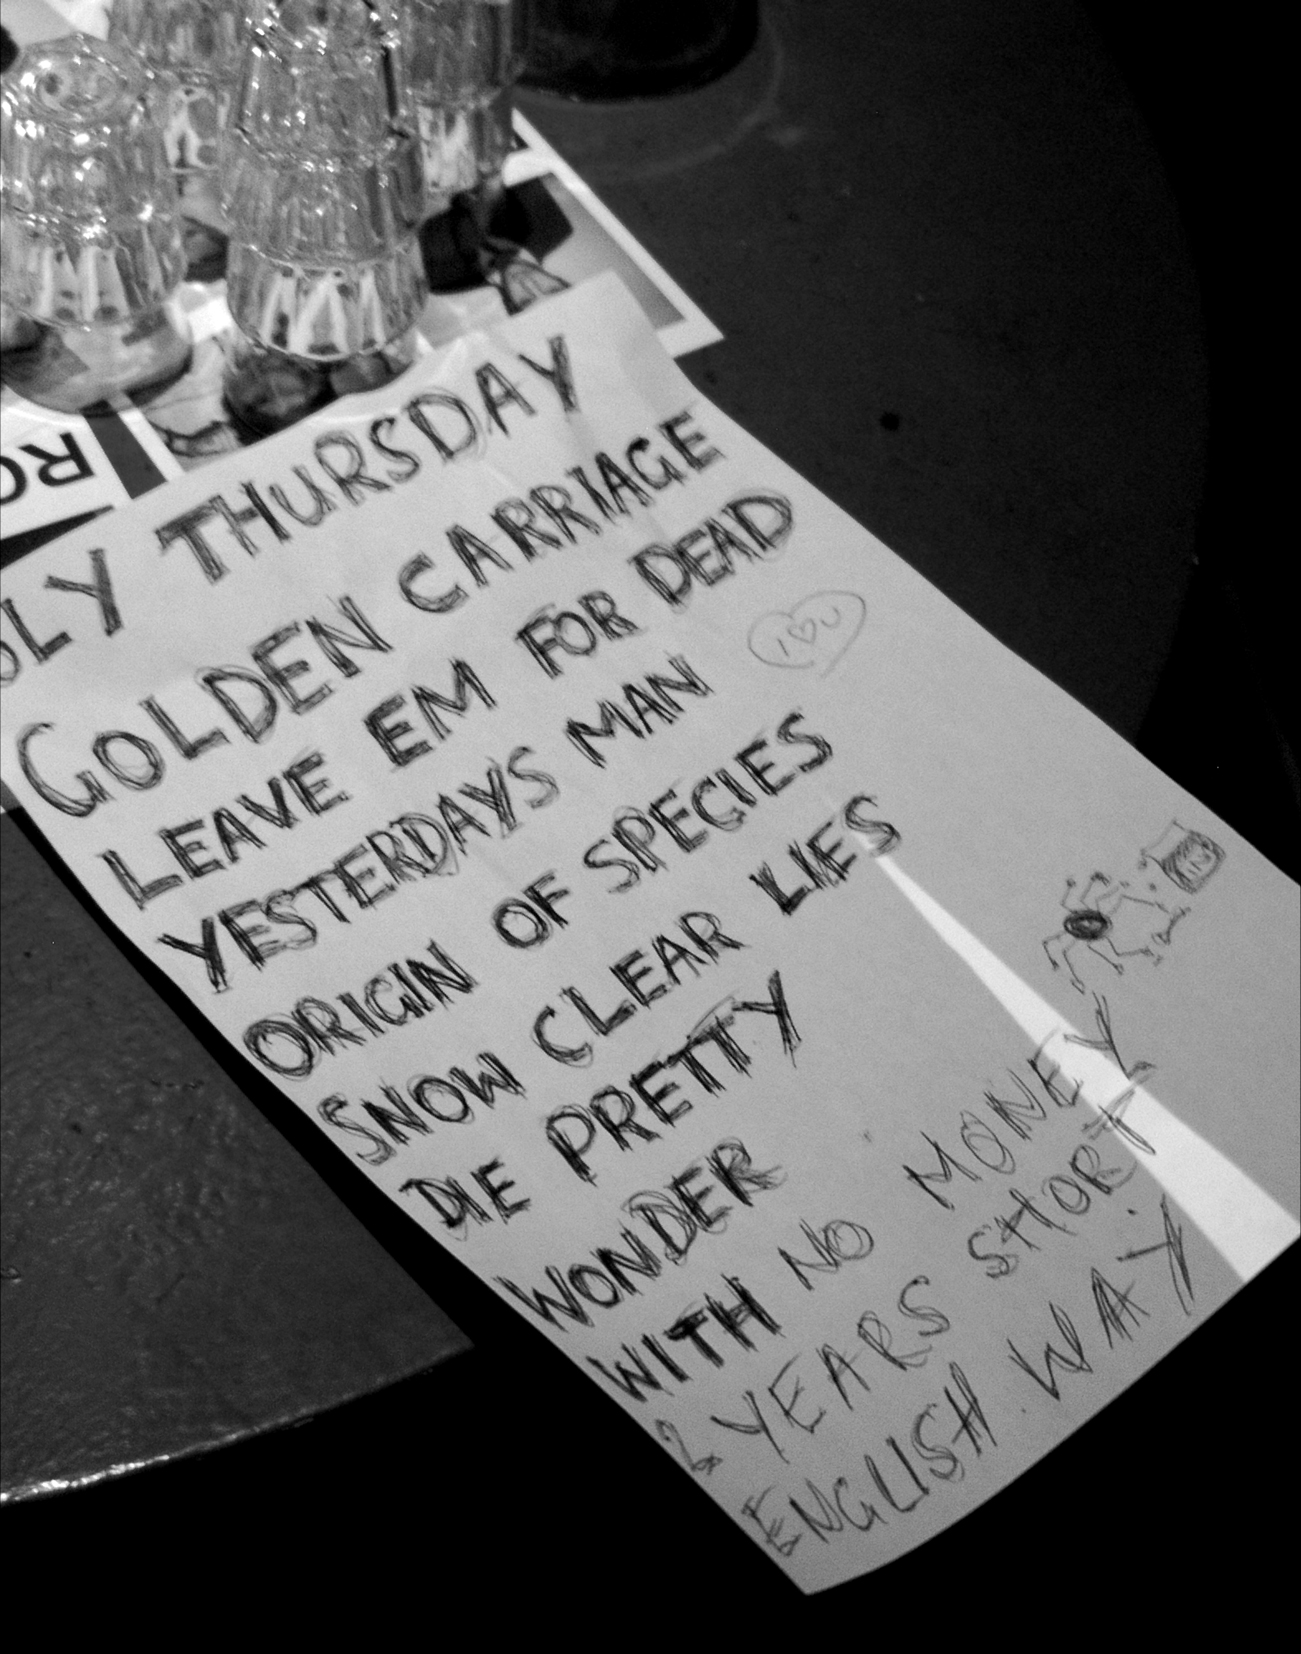 RO
OLY THURSDAY
GOLDEN CARRIAGE
LEAVE EM FOR DEAD
YESTERDAYS MAN
I ♡ U
ORIGIN OF SPECIES
SNOW CLEAR LIES
DIE PRETTY
WONDER
WITH NO MONEY
2 YEARS SHORT
ENGLISH WAY